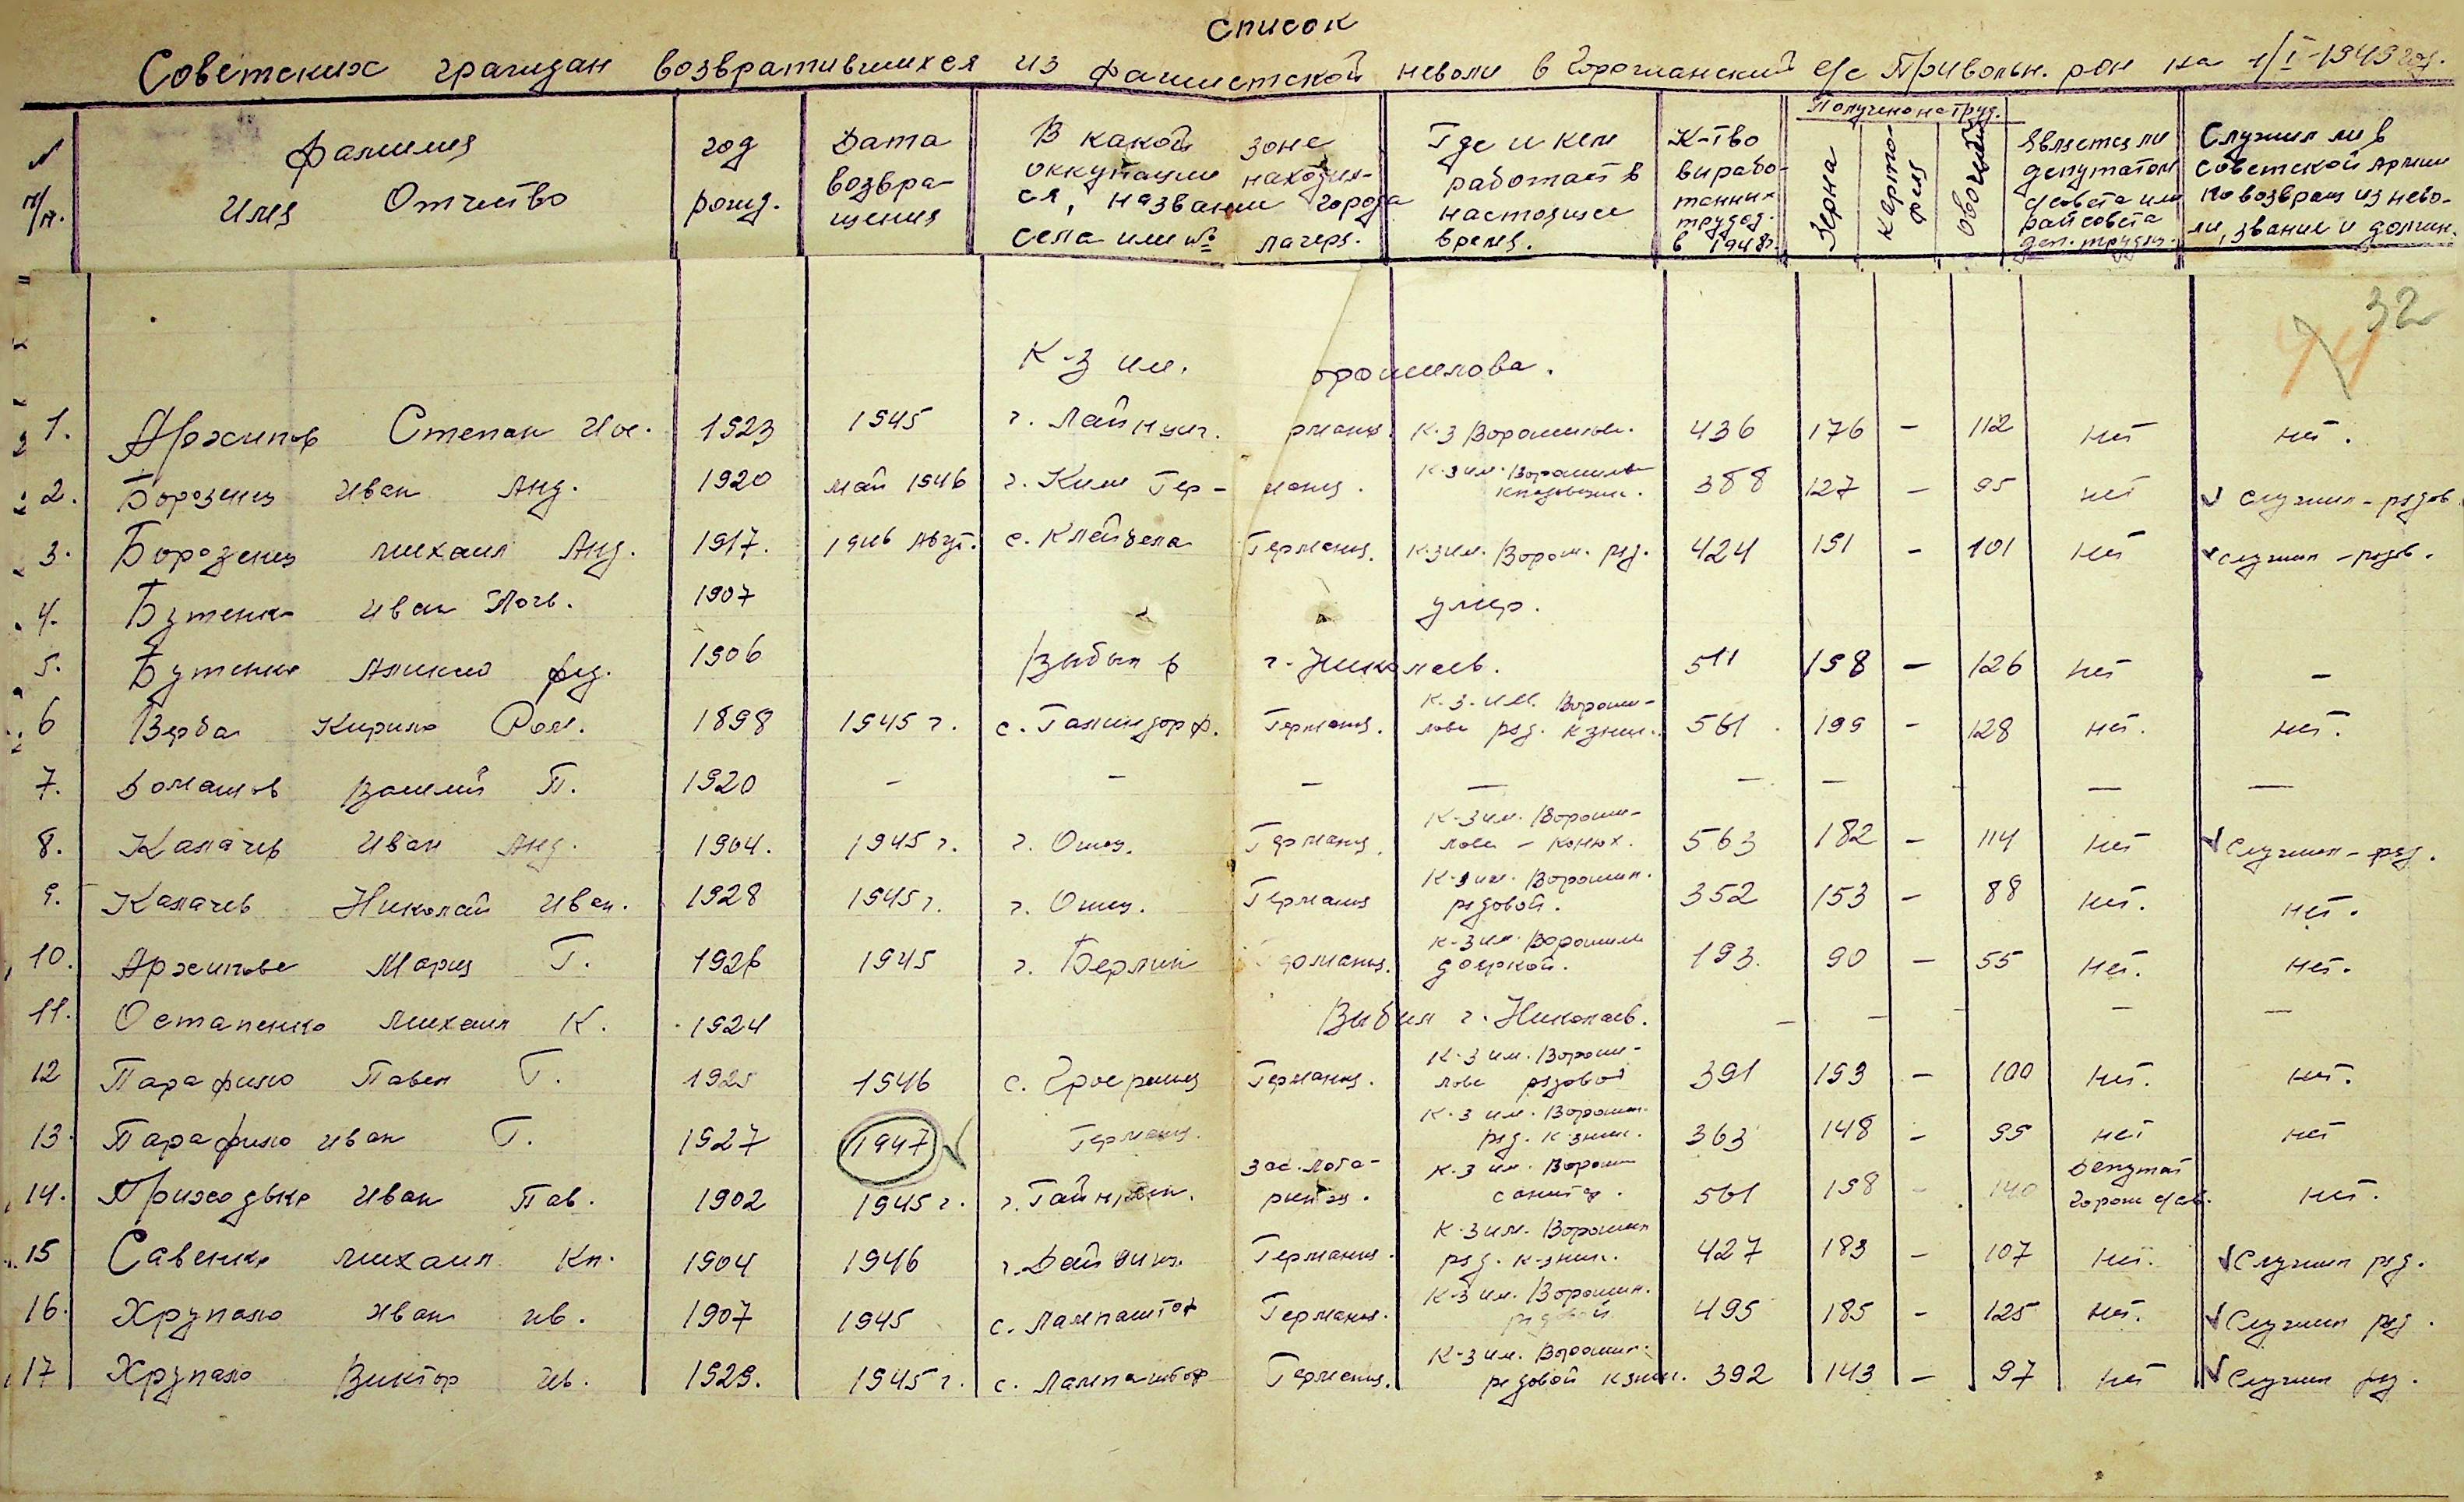 список
Советских граждан возвратившихся из фашистской неволи в Горожанский с/с Привольн. р-он на 1/I-1949 год.
N п/п. Фамилия Имя Отчество год рожд. Дата возвращения В какой зоне оккупации находился, название города села или № лагеря. Где и кем работает в настоящее время. К-тво выработанных трудод. в 1948г. Получено на труд. Зерна картофеля овощей Является ли депутатом с/совета или райсовета деп. трудящ. Служил ли в советской армии по возвращ из неволи, звание и должн.
32
К-з им. орошилова.
1. Архипов Степан Ис. 1923 1945 г. Лайнунг. рмания. К-з Ворошилов. 436 176 – 112 нет нет.
2. Борозенец Иван Анд. 1920 май 1946 г. Киле Гер- мания. К-з им. Ворошилов кладовщик. 388 127 – 95 нет служил - рядов
3. Борозенец михаил Анд. 1917. 1946 Авуг. с. Клейвела Германия. к-з им. Ворош. ряд. 424 151 – 101 нет служил - рядов.
4. Бутенко Иван Логв. 1907 умер.
5. Бутенко Алексей фед. 1906 Выбыл в г. Николаев. 511 158 – 126 нет –
6 Верба Кирило Ром. 1898 1945 г. с. Галиндорф. Германия. К-з. им. Ворошилова ряд. к-зник. 561 199 – 128 нет. нет.
7. Домашов Василий П. 1920 – – – – – – – –
8. Калачев Иван Анд. 1904. 1945 г. г. Ошац. Германия. К-з им. Ворошилова – конюх. 563 182 – 114 нет служил - ряд.
9. Калачев Николай Иван. 1928 1945 г. г. Ошац. Германия К-з им. Ворошил. рядовой. 352 153 – 88 нет. нет.
10. Архипова Мария Г. 1926 1945 г. Берлин рмания. К-з им. Ворошил дояркой. 193. 90 – 55 нет. нет.
11. Остапенко михаил К. 1924 Выбыл г. Николаев. – – – – –
12 Парафило Павел Г. 1925 1946 с. Германия. К-з им. Ворошилова рядовой 391 153 – 100 нет. нет.
13. Парафило иван Г. 1927 1947 Германия. К-з им. Ворошил. ряд. к-зник. 363 148 – 95 нет нет
14. Приходько Иван Пав. 1902 1945 г. г. К-з им. Ворошил санитар. 561 158 – 140 Депутат Горож с/сов. нет.
15 Савенко михаил Кп. 1904 1946 г. Германия. К-з им. Ворошил ряд. к-зник. 427 183 – 107 нет. Служил ряд.
16. Хрупало Иван ив. 1907 1945 с. Лампаштоф Германия. К-з им. Ворошил. рядовой 495 185 – 125 нет. Служил ряд.
17 Хрупало Виктор ив. 1929. 1945 г. с. Лампаштоф Германия. К-з им. Ворошил. рядовой к-зник. 392 143 – 97 нет Служил ряд.